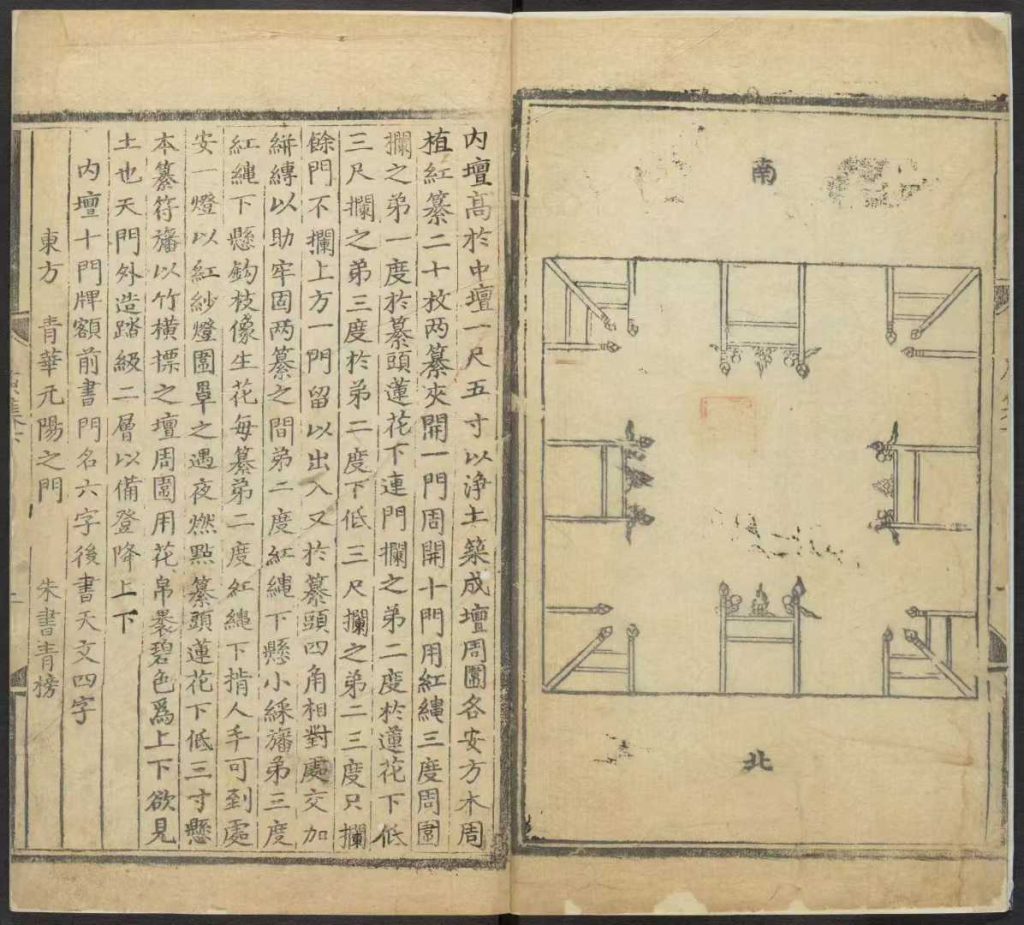 南
北
内壇高於中壇一尺五寸以淨土築成壇周圍各安方木周
植紅纂二十枚两纂夾開一門周開十門用紅繩三度周圍
攔之弟一度於纂頭蓮花下連門攔之弟二度於蓮花下低
三尺攔之弟三度於弟二度下低三尺攔之弟二三度只攔
餘門不攔上方一門留以出入又於纂頭四角相對處交加
絣縛以助牢固两纂之間弟二度紅繩下懸小綵旛弟三度
紅繩下懸鈎枝像生花每纂弟二度紅繩下揹人手可到處
安一燈以紅紗燈圍罩之遇夜燃點纂頭蓮花下低三寸懸
本纂符旛以竹橫摽之壇周圍用花帛褁碧色爲上下欲見
土也天門外造踏級二層以備登降上下
内壇十門牌額前書門名六字後書天文四字
東方 青華元陽之門 朱書青榜